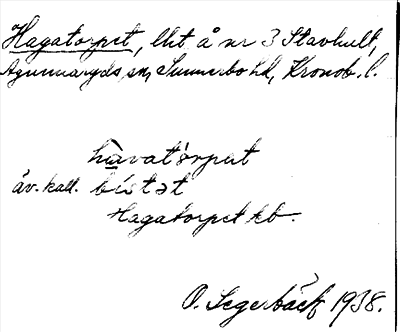 Hagatorpet, lht å nr 3 Stavhult,
Agunnaryds sn, Sunnerbo hd, Kronob. l.
havatòrput
äv. kall. bístət
Hagatorpet kb.
O. Segerbäck 1938.